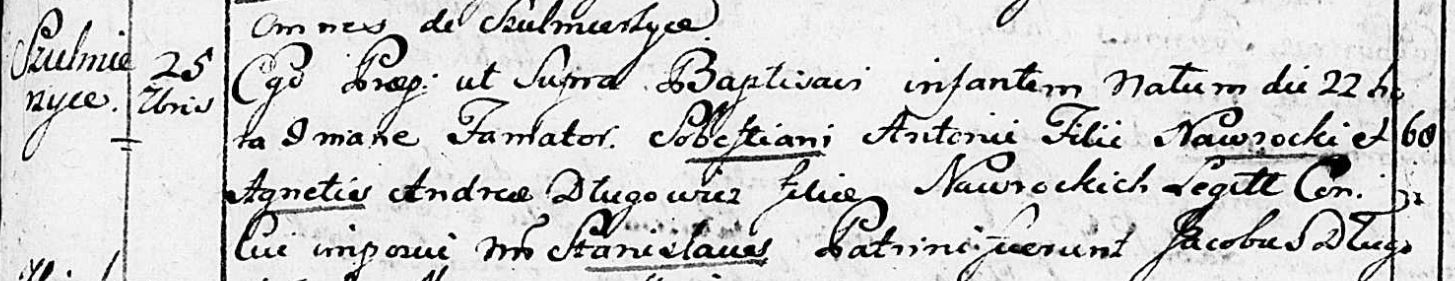 omnes de Szulmierzyce
Szulmie 25 Ego Præp: ut Supra Baptisavi infantem natum die 22 ho
rzyce. Xbris ra 9 mane Famator. Sobestiani Antonii Filii Nawrocki et 68
Agnetis Andreæ Dlugowicz filiæ Nawrockich Legitt Con:
Cui imposui nn Stanislaus Patrini fuerunt Jacobus Dlugo